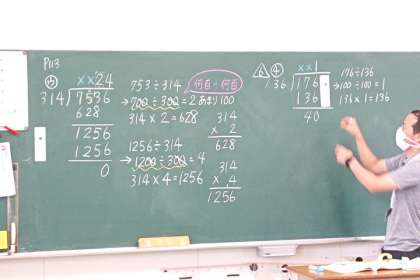 P113
ウ
××24
314)7536
628
1256
1256
0
753÷314
何百÷何百
→700÷300=2あまり100
314×2=628
314
× 2
628
1256÷314
→1200÷300=4
314×4=1256
314
× 4
1256
6 4
××1
136)176
136
40
176÷136
→100÷100=1
136×1=136